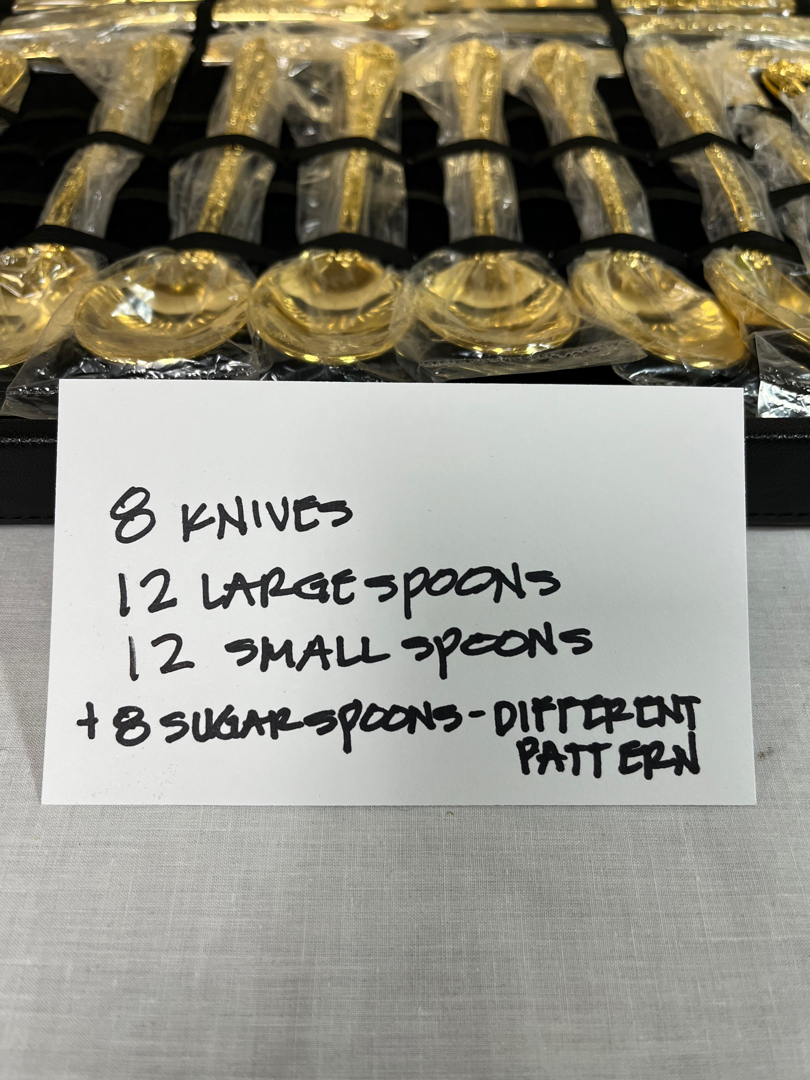 8 KNIVES
12 LARGE SPOONS
12 SMALL SPOONS
+ 8 SUGAR SPOONS - DIFFERENT
PATTERN